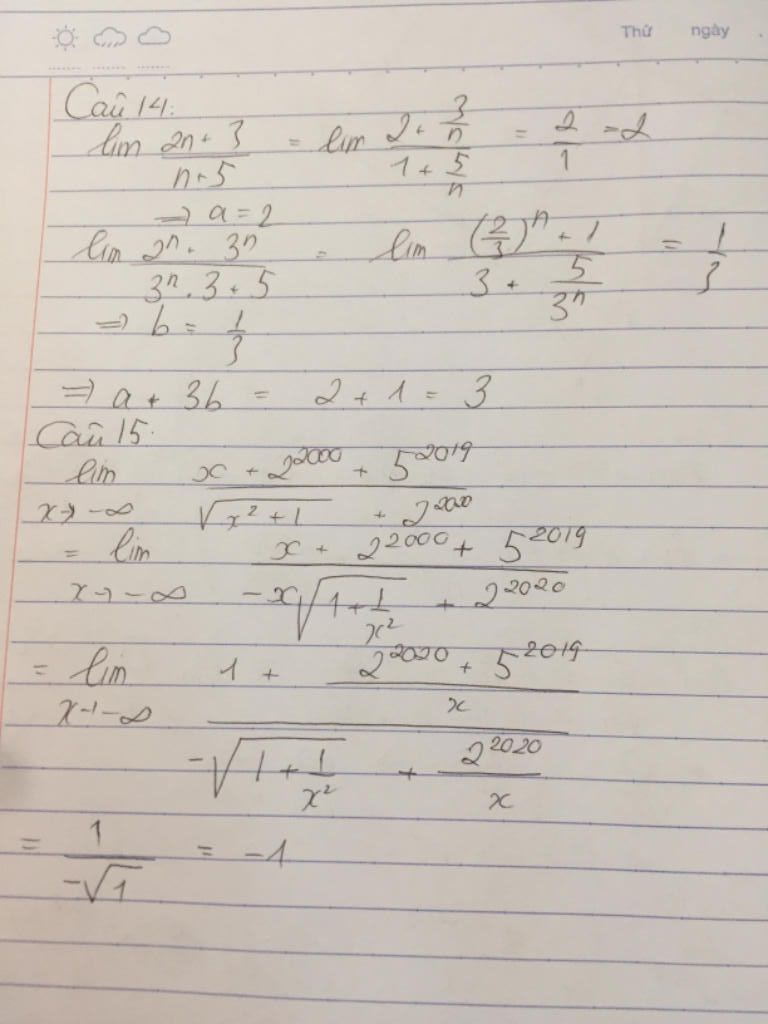 Thứ ngày .
Câu 14:
lim (2n + 3)/(n + 5) = lim (2 + 3/n)/(1 + 5/n) = 2/1 = 2
⇒ a = 2
lim (2ⁿ + 3ⁿ)/(3ⁿ.3 + 5) = lim ((2/3)ⁿ + 1)/(3 + 5/3ⁿ) = 1/3
⇒ b = 1/3
⇒ a + 3b = 2 + 1 = 3
Câu 15:
lim x→-∞ (x + 2^2000 + 5^2019)/(√(x² + 1) + 2^2020)
= lim x→-∞ (x + 2^2000 + 5^2019)/(-x√(1 + 1/x²) + 2^2020)
= lim x→-∞ (1 + (2^2020 + 5^2019)/x)/(-√(1 + 1/x²) + 2^2020/x)
= 1/(-√1) = -1